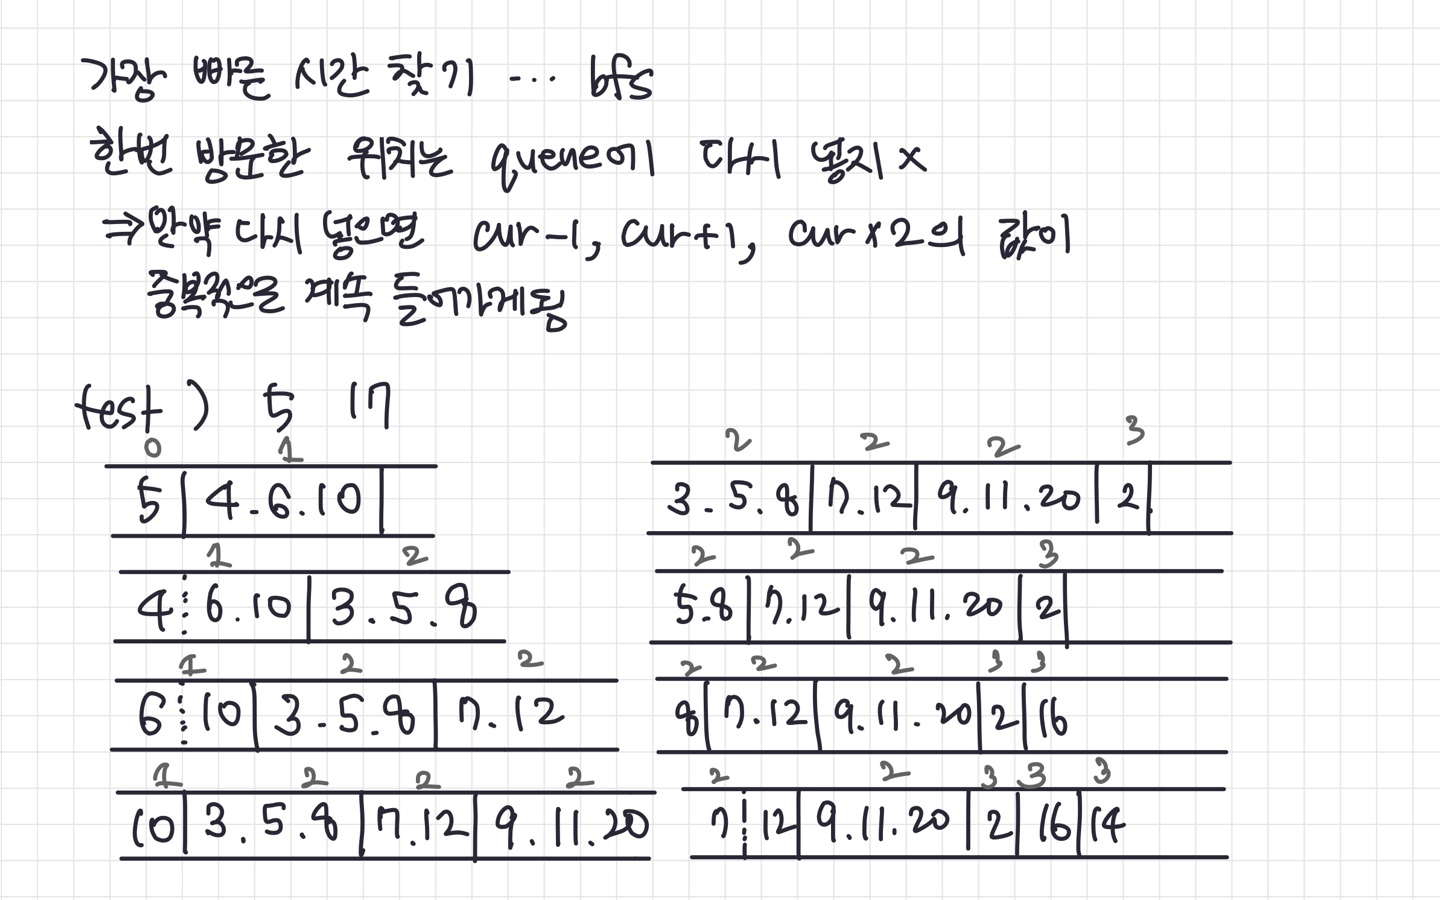 가장 빠른 시간 찾기 ... bfs
한번 방문한 위치는 queue에 다시 넣지 x
⇒ 만약 다시 넣으면 cur-1, cur+1, cur×2의 값이
중복적으로 계속 들어가게됨
test ) 5 17
0 1
5 | 4 . 6 . 10 |
1 2
4 6 . 10 | 3 . 5 . 8
1 2 2
6 10 | 3 . 5 . 8 | 7 . 12
1 2 2 2
10 | 3 . 5 . 8 | 7 . 12 | 9 . 11 . 20
2 2 2 3
3 . 5 . 8 | 7 . 12 | 9 . 11 . 20 | 2 |
2 2 2 3
5 . 8 | 7 . 12 | 9 . 11 . 20 | 2 |
2 2 2 3 3
8 | 7 . 12 | 9 . 11 . 20 | 2 | 16
2 2 3 3 3
7 12 | 9 . 11 . 20 | 2 | 16 | 14